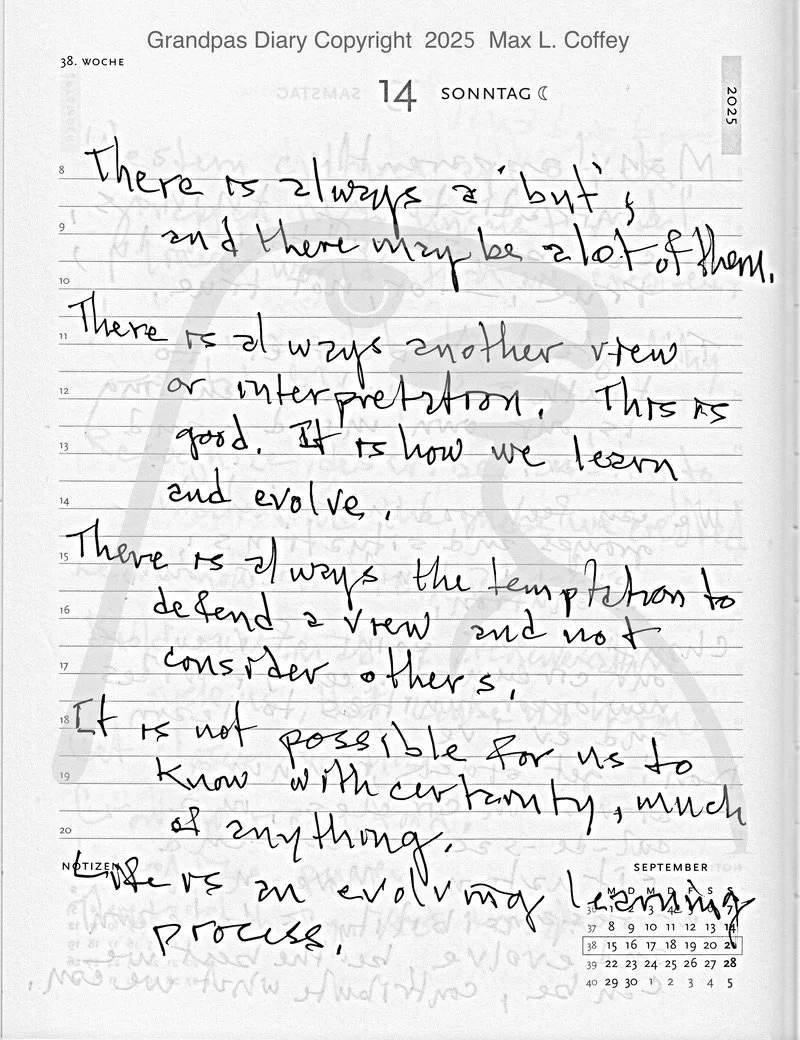 Grandpas Diary Copyright 2025 Max L. Coffey
38. WOCHE
14 SONNTAG
2025
8 There is always a 'but',
9 and there may be a lot of them.
10
11 There is always another view
12 or interpretation. This is
13 good. It is how we learn
14 and evolve.
15 There is always the temptation to
16 defend a view and not
17 consider others.
18 It is not possible for us to
19 know with certainty, much
20 of anything.
NOTIZEN
SEPTEMBER
Life is an evolving learning
process.
M D M D F S S
36 1 2 3 4 5 6 7
37 8 9 10 11 12 13 14
38 15 16 17 18 19 20 21
39 22 23 24 25 26 27 28
40 29 30 1 2 3 4 5